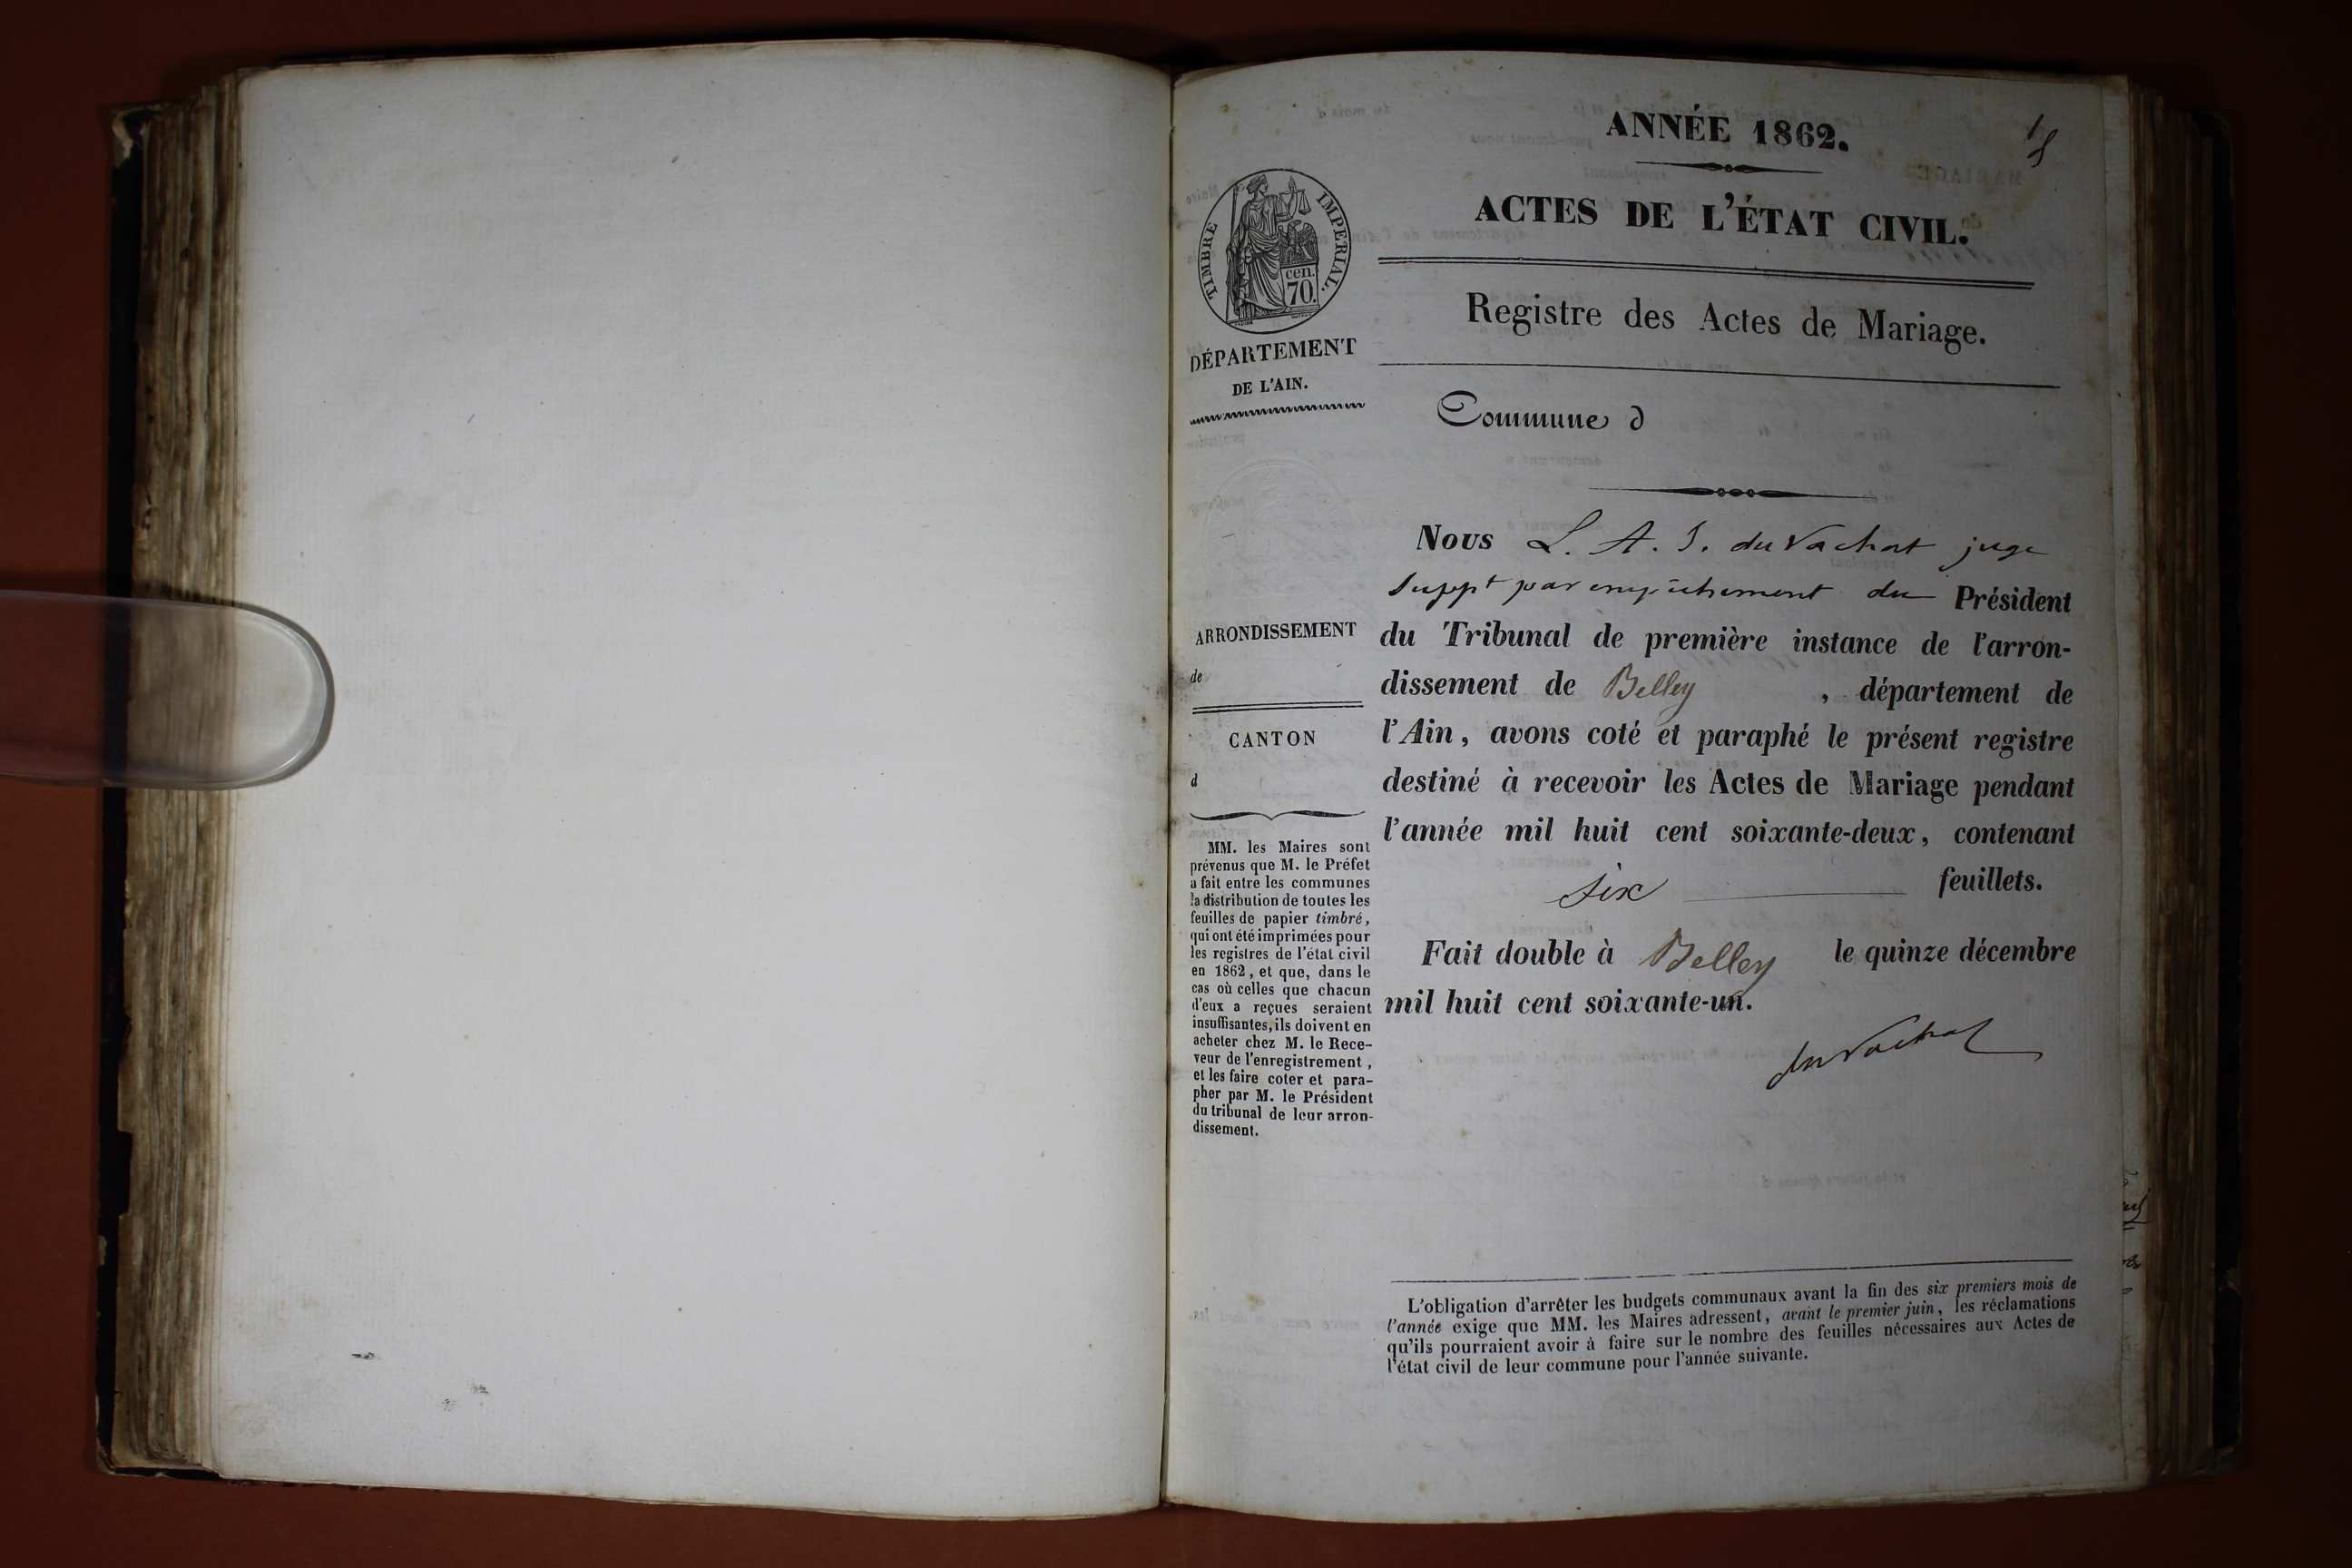 ANNÉE 1862.
1
ACTES DE L'ÉTAT CIVIL.
Registre des Actes de Mariage.
TIMBRE IMPERIAL.
cen.
70.
DÉPARTEMENT
DE L'AIN.
Commune d
Nous L. A. J. du Vachat juge
suppt par empêchement du Président
du Tribunal de première instance de l'arron-
dissement de Belley , département de
l'Ain, avons coté et paraphé le présent registre
destiné à recevoir les Actes de Mariage pendant
l'année mil huit cent soixante-deux, contenant
six feuillets.
Fait double à Belley le quinze décembre
mil huit cent soixante-un.
du Vachat
ARRONDISSEMENT
de
CANTON
d
MM. les Maires sont
prévenus que M. le Préfet
a fait entre les communes
la distribution de toutes les
feuilles de papier timbré,
qui ont été imprimées pour
les registres de l'état civil
en 1862, et que, dans le
cas où celles que chacun
d'eux a reçues seraient
insuffisantes, ils doivent en
acheter chez M. le Rece-
veur de l'enregistrement,
et les faire coter et para-
pher par M. le Président
du tribunal de leur arron-
dissement.
L'obligation d'arrêter les budgets communaux avant la fin des six premiers mois de
l'année exige que MM. les Maires adressent, avant le premier juin, les réclamations
qu'ils pourraient avoir à faire sur le nombre des feuilles nécessaires aux Actes de
l'état civil de leur commune pour l'année suivante.